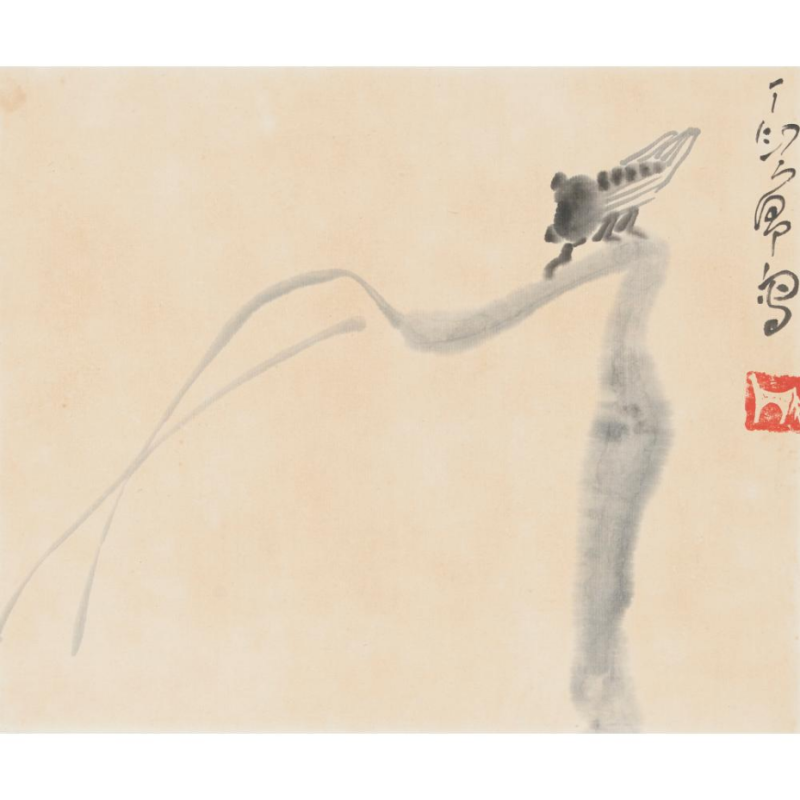 丁衍庸寫